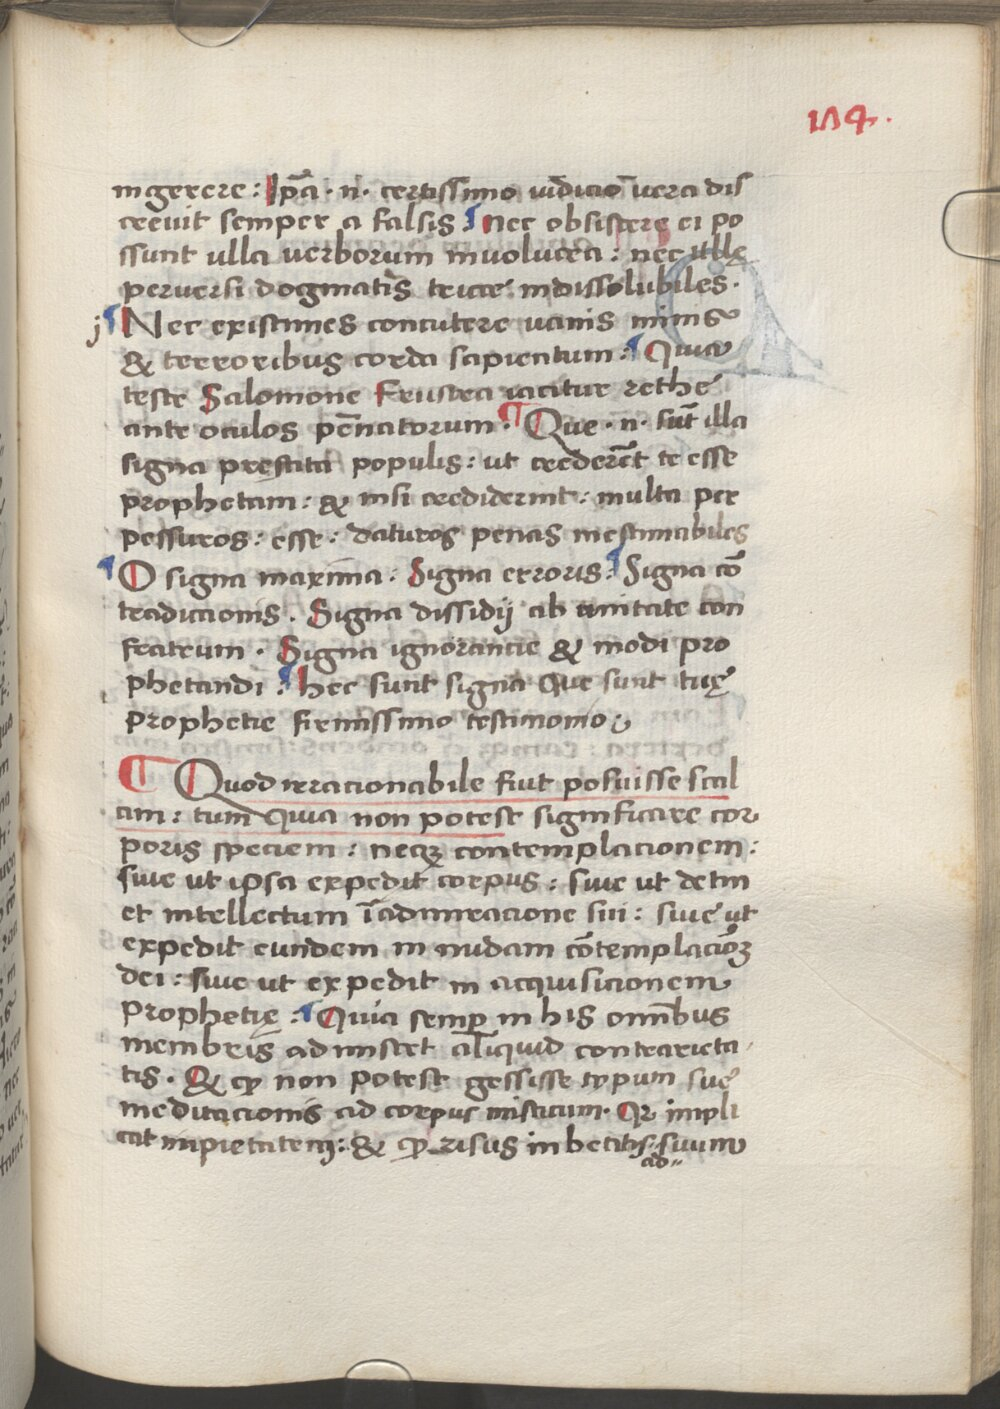 154.
ingerere: Ip̄a · n · certissimo iudicio vera dis
creuit semper a falsis: Nec obsistere ei po
ssunt ulla verborum inuolucra: nec ullę
peruersi dogmatis tricce indissolubiles.
j Nec existimes concutere vanis minis
& terroribus corda sapientum: Quia
teste Salomone Frustra iacitur rethe
ante oculos pēnatorum. Que · n · sūt illa
signa prestita populis: ut crederēt te esse
prophetam: & nisi crediderint: multa per
pessuros: esse: daturos penas inestimabiles
O signa maxima: Signa erroris: Signa cō
tradictionis. Signa dissidij ab unitate con
fratrum. Signa ignorancie & modi pro
phetandi: hec sunt signa que sunt tuę
prophetie firmissimo testimonio
Quod irracionabile fiut posuisse scal
am: tum quia non potest significare cor
poris speciem: necq; contemplacionem:
siue ut ipsa expedit corpus: siue ut detin
et intellectum ī admiracione sui: siue ut
expedit eundem in nudam cōtemplaciōꝫ
dei: siue ut expedit in acquisicionem
prophetię: Quia semp in his omībus
membris admiscet aliquid contrarieta
tis. & qꝫ non potest gessisse typum sue
meditacionis ad corpus misticum. Qꝛ impli
cat inpietatem: & qꝫ risus in beatis suum
ad